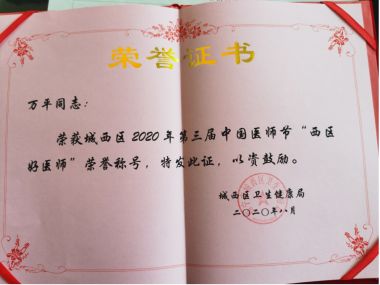 荣誉证书
万平同志:
荣获城西区2020年第三届中国医师节“西区
好医师”荣誉称号,特发此证,以资鼓励。
城西区卫生健康局
二〇二〇年八月